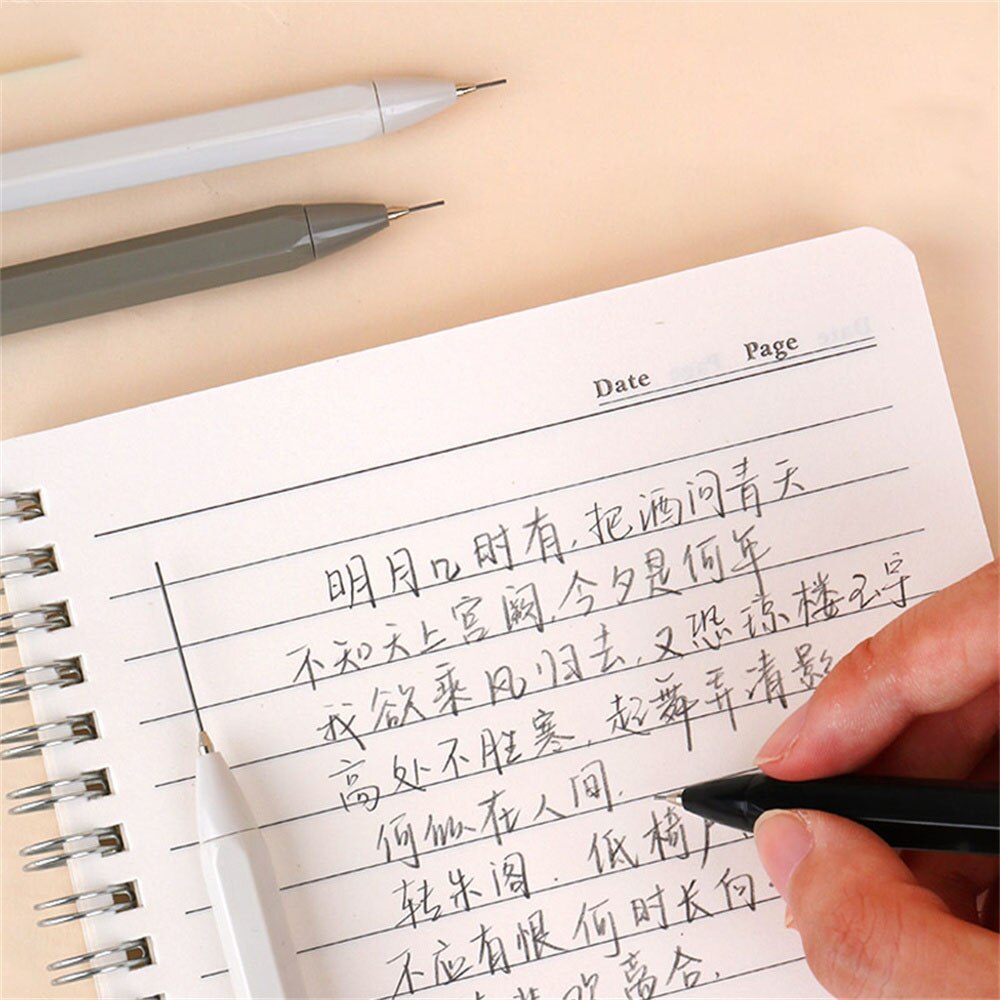 Date Page
明月几时有,把酒问青天
不知天上宫阙,今夕是何年
我欲乘风归去,又恐琼楼玉宇
高处不胜寒,起舞弄清影
何似在人间.
转朱阁.低绮户
不应有恨 何时长向
悲欢离合.